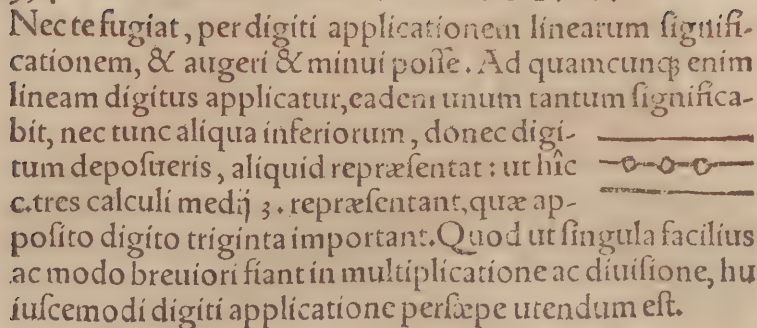 Nec te fugiat, per digiti applicationem linearum signifi-
cationem, & augeri & minui posse. Ad quamcunq; enim
lineam digitus applicatur, eadem unum tantum significa-
bit, nec tunc aliqua inferiorum, donec digi-
tum deposueris, aliquid repræsentat: ut hîc
c.tres calculi medij 3. repræsentant, quæ ap-
posito digito triginta important. Quod ut singula facilius
ac modo breuiori fiant in multiplicatione ac diuisione, hu
iuscemodi digiti applicatione persæpe utendum est.